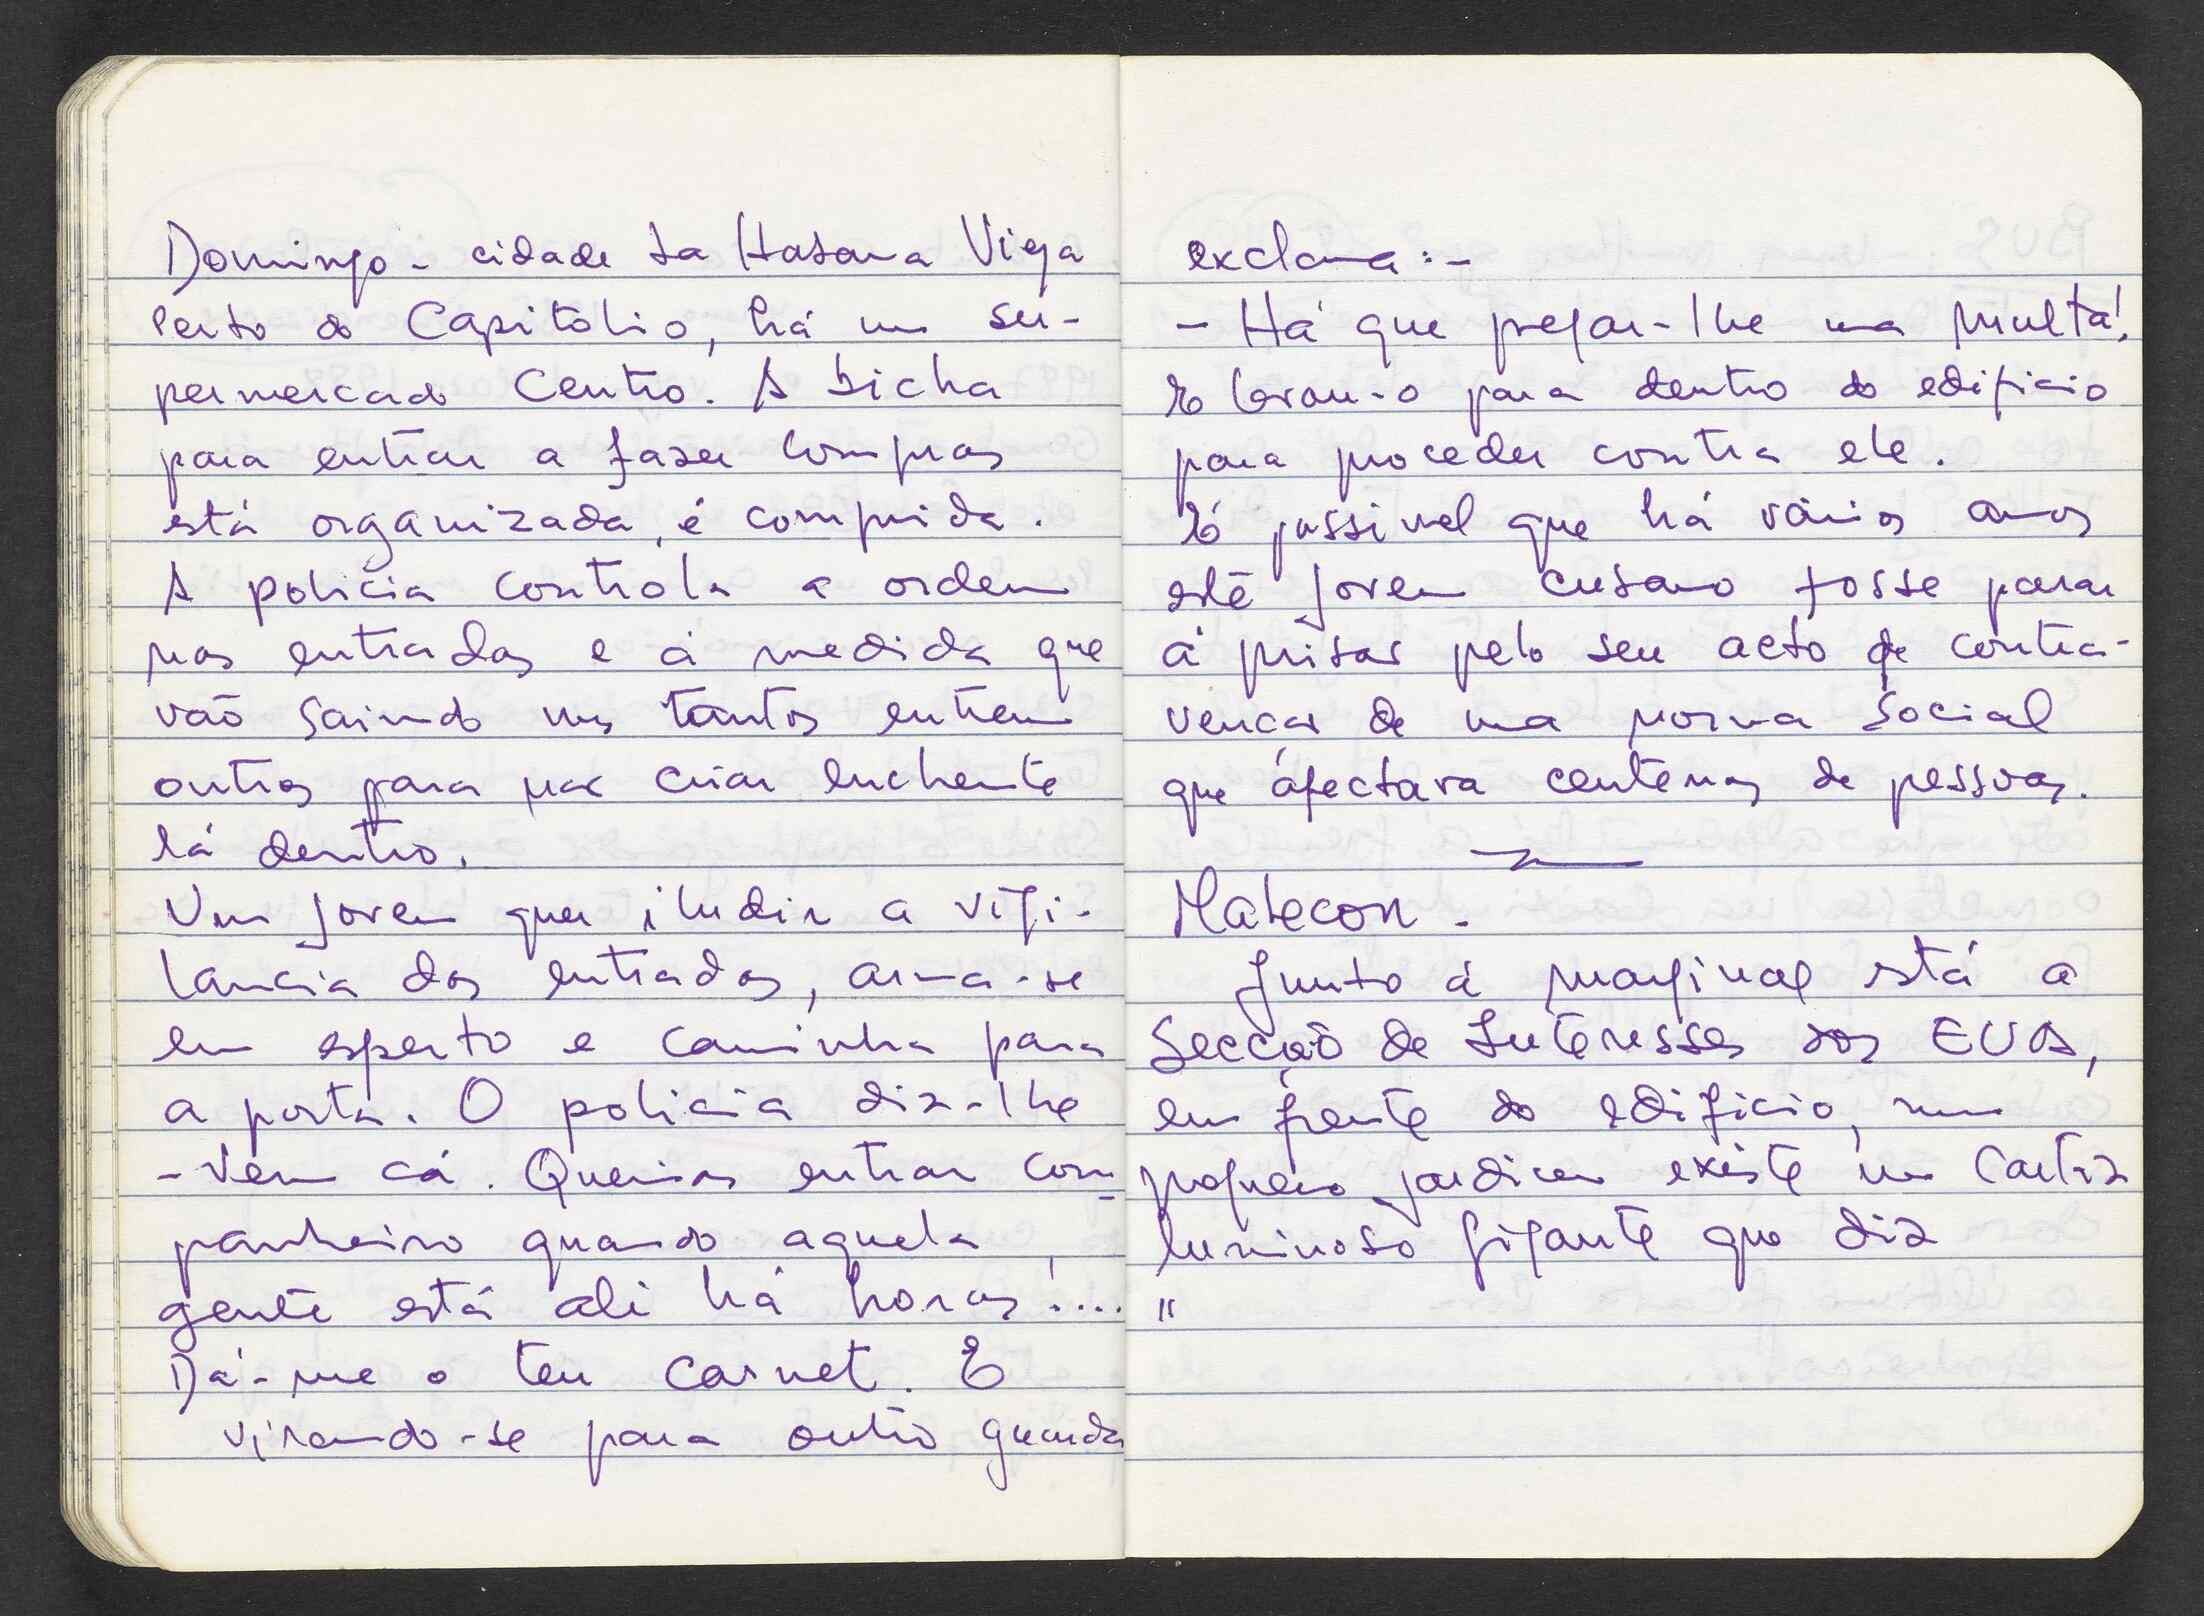 Domingo - cidade da Habana Vieja
Perto do Capitólio, há um su-
permercado Centro. A bicha
para entrar a fazer compras
está organizada, é comprida.
A policia controla a ordem
nas entradas e á medida que
vão saindo uns tantos entrem
outros para não criar enchente
lá dentro.
Um jovem quer iludir a vigi-
lancia das entradas, arma-se
em esperto e caminha para
a porta. O policia diz-lhe
- Vem cá. Querias entrar com-
panheiro quando aquela
gente está ali há horas!....
Dá-me o teu carnet. E
virando-se para outro guarda
exclama:-
- Há que pregar-lhe uma multa!
E levam-o para dentro do edificio
para proceder contra ele.
É possivel que há vários anos
este jovem cubano fosse parar
á prisão pelo seu acto de contra-
venção de uma norma social
que afectava centenas de pessoas.
Malecon -
Junto á marginal está a
Secção de Interesses dos EUA,
em frente do edificio, num
pequeno jardim existe um Cartaz
luminoso gigante que diz
"